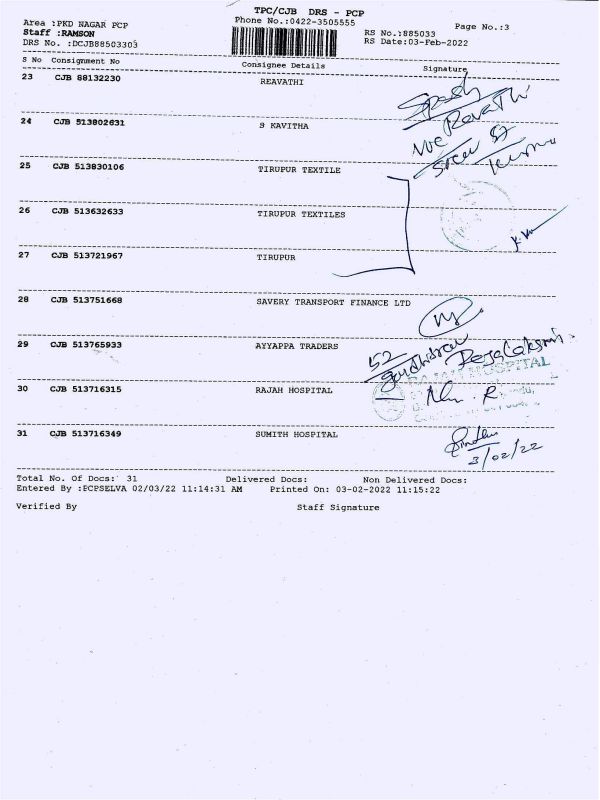 TPC/CJB DRS - PCP
Area :PKD NAGAR PCP Phone No.:0422-3505555 Page No.:3
Staff :RAMSON RS No.:885033
DRS No. :DCJB88503303 RS Date:03-Feb-2022
S No Consignment No Consignee Details Signature
23 CJB 88132230 REAVATHI
24 CJB 513802631 S KAVITHA
25 CJB 513830106 TIRUPUR TEXTILE
26 CJB 513632633 TIRUPUR TEXTILES
27 CJB 513721967 TIRUPUR
28 CJB 513751668 SAVERY TRANSPORT FINANCE LTD
29 CJB 513765933 AYYAPPA TRADERS
52
RAJAH HOSPITAL
30 CJB 513716315 RAJAH HOSPITAL
31 CJB 513716349 SUMITH HOSPITAL
3/02/22
Total No. Of Docs: 31 Delivered Docs: Non Delivered Docs:
Entered By :PCPSELVA 02/03/22 11:14:31 AM Printed On: 03-02-2022 11:15:22
Verified By Staff Signature